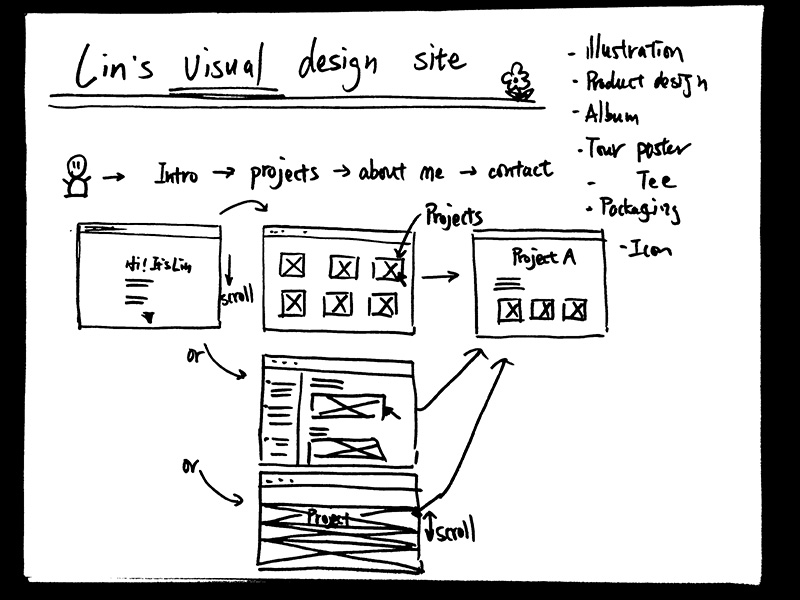 Lin's visual design site
- Illustration
- Product design
- Album
- Tour poster
- Tee
- Packaging
- Icon
→ Intro → projects → about me → contact
Projects
Hi! It's Lin
scroll
Project A
or
or
Project
scroll